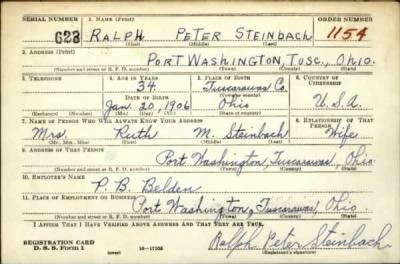 SERIAL NUMBER 1. NAME (Print) ORDER NUMBER
623 RALPH PETER STEINBACH 1154
(First) (Middle) (Last)
2. ADDRESS (Print)
PORT WASHINGTON, TUSC., OHIO.
(Number and street or R. F. D. number) (Town) (County) (State)
3. TELEPHONE 4. AGE IN YEARS 5. PLACE OF BIRTH 6. COUNTRY OF CITIZENSHIP
34 Tuscarawas Co.
DATE OF BIRTH (Town or county)
Jan. 20, 1906 Ohio U.S.A.
(Exchange) (Number) (Mo.) (Day) (Yr.) (State or country)
7. NAME OF PERSON WHO WILL ALWAYS KNOW YOUR ADDRESS 8. RELATIONSHIP OF THAT PERSON
Mrs. Ruth M. Steinbach Wife
(Mr., Mrs., Miss) (First) (Middle) (Last)
9. ADDRESS OF THAT PERSON
Port Washington, Tuscarawas, Ohio.
(Number and street or R. F. D. number) (Town) (County) (State)
10. EMPLOYER'S NAME
P. B. Belden
11. PLACE OF EMPLOYMENT OR BUSINESS
Port Washington, Tuscarawas, Ohio.
(Number and street or R. F. D. number) (Town) (County) (State)
I AFFIRM THAT I HAVE VERIFIED ABOVE ANSWERS AND THAT THEY ARE TRUE.
REGISTRATION CARD
D. S. S. Form 1 (over) 16-17105 Ralph Peter Steinbach
(Registrant's signature)